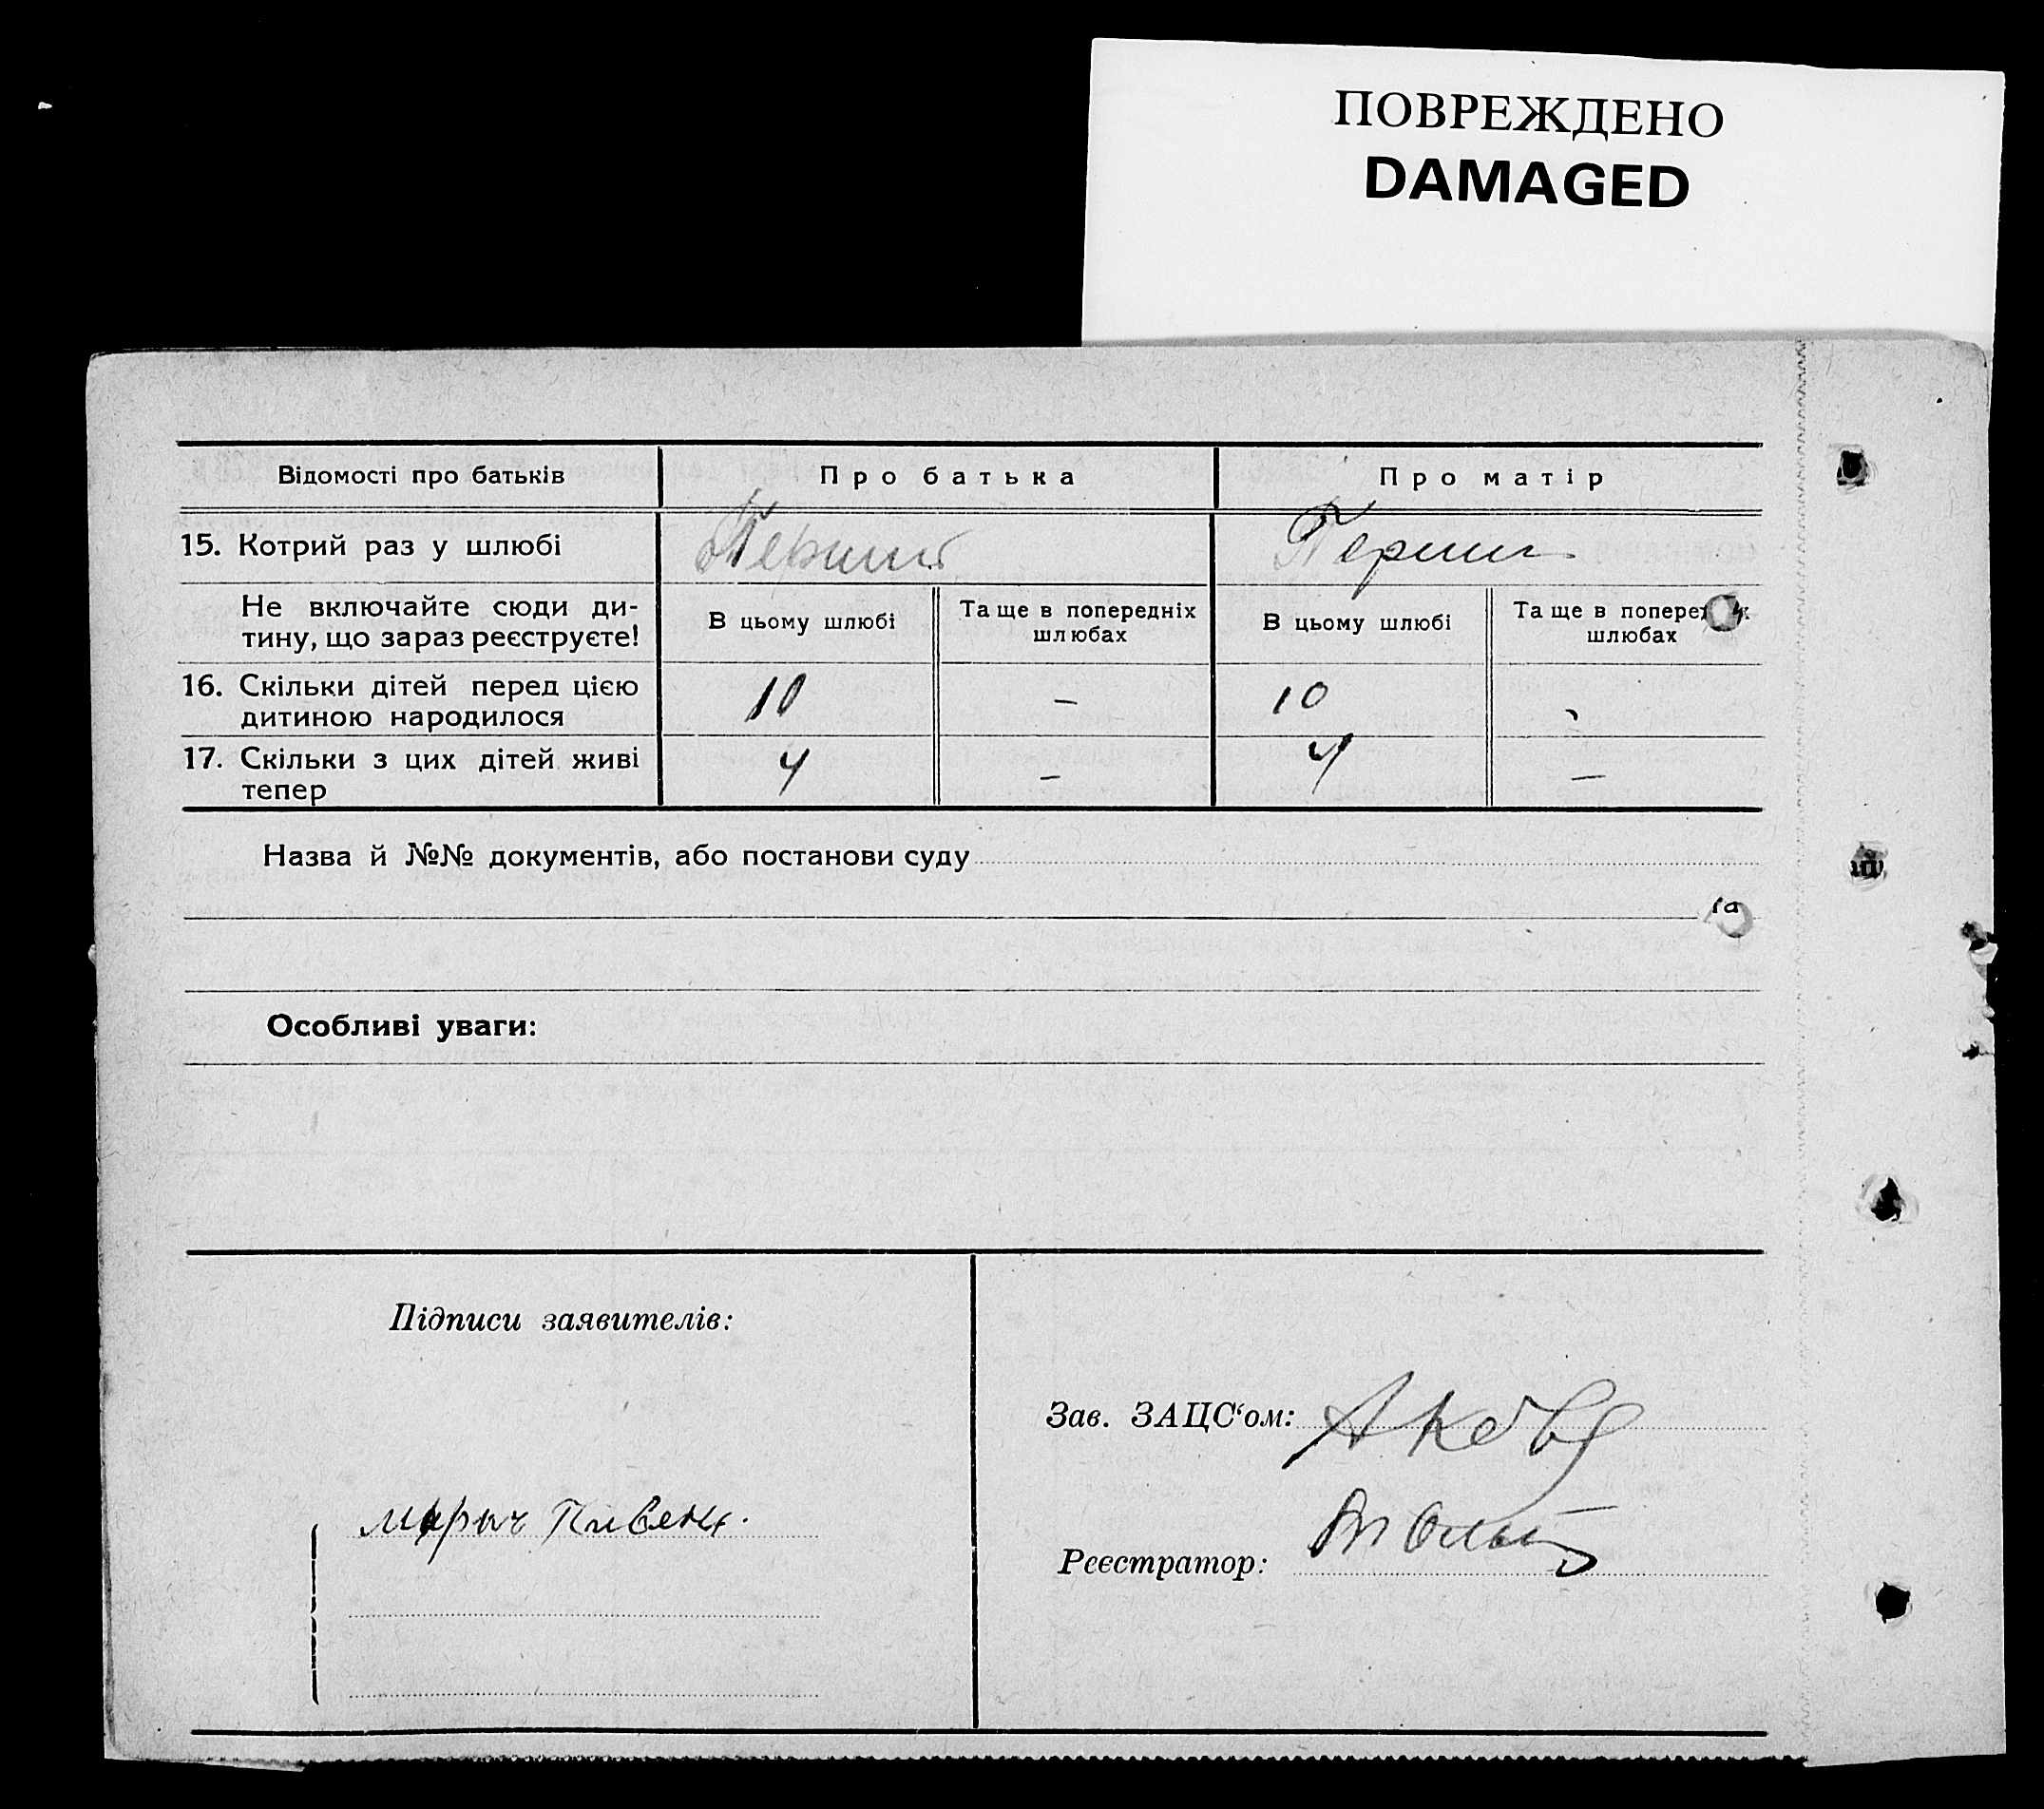 ПОВРЕЖДЕНО
DAMAGED
Відомості про батьків
Про батька
Про матір
15. Котрий раз у шлюбі
Перший
Перши
Не включайте сюди ди-
тину, що зараз реєструєте!
В цьому шлюбі
Та ще в попередніх
шлюбах
В цьому шлюбі
Та ще в
шлюбах
16. Скільки дітей перед цією
дитиною народилося
10
–
10
17. Скільки з цих дітей живі
тепер
4
–
4
–
Назва й №№ документів, або постанови суду
Особливі уваги:
Підписи заявителів:
Зав. ЗАЦС‘ом:
Реєстратор: